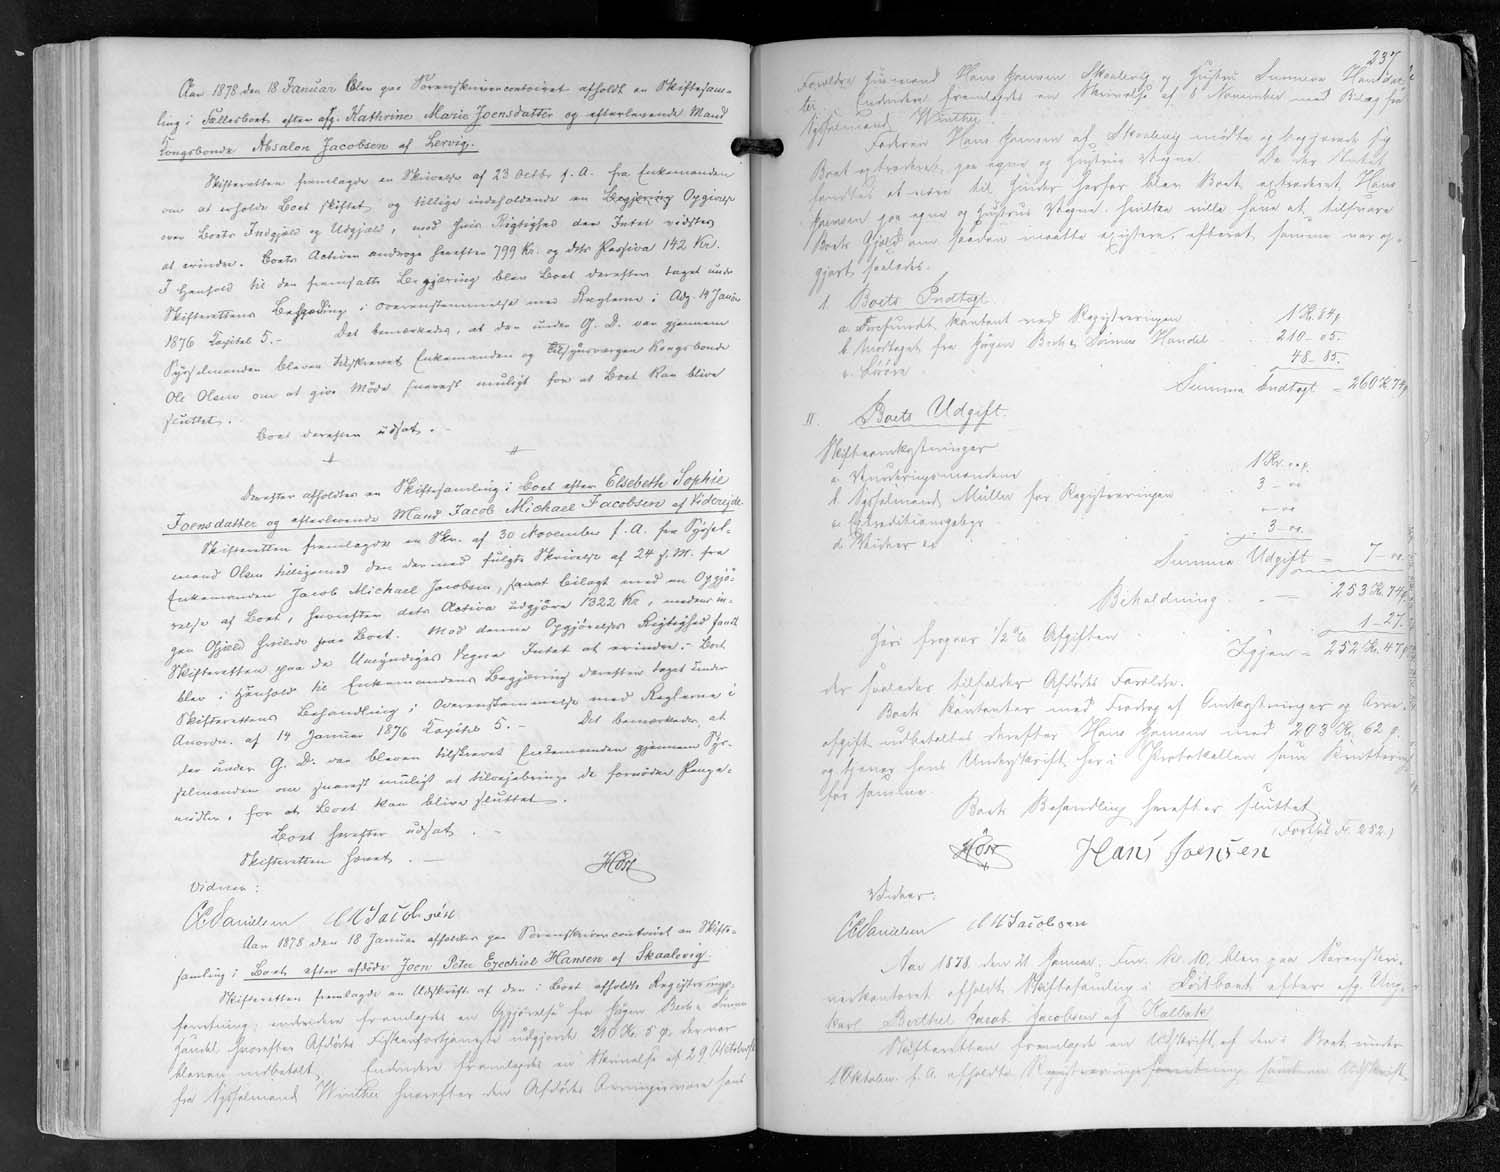 Aar 1878 den 18 Januar blev paa Sorenskrivercontoiret afholdt en Skiftesam-
ling i Fællesboet efter afg. Kathrine Marie Joensdatter og efterlevende Mand
Kongsbonde Absalon Jacobsen af Lervig.
Skifteretten fremlagde en Skrivelse af 23 Octbr f. A. fra Enkemanden
om at erholde Boet skiftet og tillige indeholdende en Opgivelse
over Boets Indgjæld og Udgjæld, mod hvis Rigtighed der Intet vidstes
at erindre. Boets Activa androge herefter 799 Kr. og dets Passiva 142 Kr.
I Henhold til den fremsatte Begjæring blev Boet derefter taget under
Skifterettens Behandling i Overensstemmelse med Reglerne i Adg. 14 Januar
1876 Kapitel 5. — Det bemærkedes, at der under G. D. var gjennem
Sysselmanden bleven tilskrevet Enkemanden og Tilsynsværgen Kongsbonde
Ole Olsen om at give Møde snarest muligt for at Boet kan blive
sluttet.
Boet derefter udsat.
Derefter afholdtes en Skiftesamling i Boet efter Elsebeth Sophie
Joensdatter og efterlevende Mand Jacob Michael Jacobsen af Videreide
Skifteretten fremlagde en Skr. af 30 November f. A. fra Syssel-
mand Olsen tilligemed den dermed fulgte Skrivelse af 24 s. M. fra
Enkemanden Jacob Michael Jacobsen, bilagt med en Opgjø-
relse af Boet, hvorefter dets Activa udgjøre 1322 Kr, medens in-
gen Gjæld hvilede paa Boet. Mod denne Opgjørelses Rigtighed fandt
Skifteretten paa de Umyndiges Vegne Intet at erindre. — Boet
blev i Henhold til Enkemandens Begjæring derefter taget under
Skifterettens Behandling i Overensstemmelse med Reglerne i
Anordn. af 14 Januar 1876 Kapitel 5. — Det bemærkedes, at
der under G. D. var bleven tilskrevet Enkemanden gjennem Sys-
selmanden om snarest muligt at tilvejebringe de fornødne Penge-
midler, for at Boet kan blive sluttet.
Boet herefter udsat.
Skifteretten hævet. —
Høst
Vidner:
CEDanielsen CMJacobsen
Aar 1878 den 18 Januar afholdes paa Sorenskrivercontoiret en Skifte-
samling i Boet efter afdøde Joen Peter Ezechiel Hansen af Skaalevig.
Skifteretten fremlagde en Udskrift af den i Boet afholdte Registrerings-
forretning; endvidere fremlagdes en Opgjørelse fra Høgen Bech & Sønners
Handel hvorefter Afdødes Fiskerfortjeneste udgjorde 210 Kr. 5 Ø. der var
bleven indbetalt. Endvidere fremlagdes en Skrivelse af 29 Oktober
fra Sysselmand Winther hvorefter den Afdødes Arvinger vare hans
237
Forældre Huusmand Hans Joensen Skaalevig og Hustru Hansdat-
ter. Endvidere fremlagdes en Skrivelse af 8 November med Bilag fra
Sysselmand Winther.
Faderen Hans Joensen af Skaalevig mødte og begjærede sig
Boet extraderet, paa egne og Hustrus Vegne. Da der Intet
fandtes at være til Hinder herfor blev Boet extraderet Hans
Joensen paa egne og Hustrus Vegne, hvilke ville have at tilsvare
Boets Gjæld om saadan maatte existere, efterat samme var op-
gjort saaledes.
I. Boets Indtægt.
a. Forefundet kontant ved Registreringen 1 Kr. 84 ø
b. Modtaget fra Høgen Bech & Sønners Handel 210 – 05.
c. 48 – 85.
Summa Indtægt = 260 Kr. 74 ø
II. Boets Udgift.
Skifteomkostninger
a. Vurderingsmændene 1 Kr. 00.
b. Sysselmand Müller for Registreringen 3 – 00
c. Expeditionsgebyr – 00
d. 3 – 00.
Summa Udgift = 7 – 00.
Beholdning — 253 Kr. 74 ø
Heri fragaar 1/2 % Afgiften 1 – 27.
Igjen = 252 Kr. 47 ø
der saaledes tilfalder Afdødes Forældre.
Boets Kontanter med Fradrag af Omkostninger og Arve-
afgift udbetaltes derefter Hans Joensen med 203 Kr. 62 ø.
og tjener hans Underskrift her i Protokollen som Kvittering
for samme.
Boets Behandling herefter sluttet
(Forts. F. 252.)
Høst Hans Joensen
Vidner:
CEDanielsen CMJacobsen
Aar 1878 den 21 Januar. Fm. Kl. 10, blev paa Sorenskri-
verkontoret afholdt Skiftesamling i Dødsboet efter afg. Ung-
karl Berthel Jacob Jacobsen af Kalbak
Skifteretten fremlagde en Udskrift af den i Boet under
1 Oktober f. A. afholdte Registreringsforretning samt en Udskrift